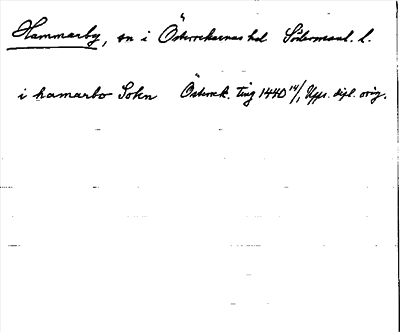 Hammarby, sn i Österrekarnas hd Södermanl. l.
i hamarbo Sokn Österrek. ting 1440 14/1, Upps. dipl. orig.